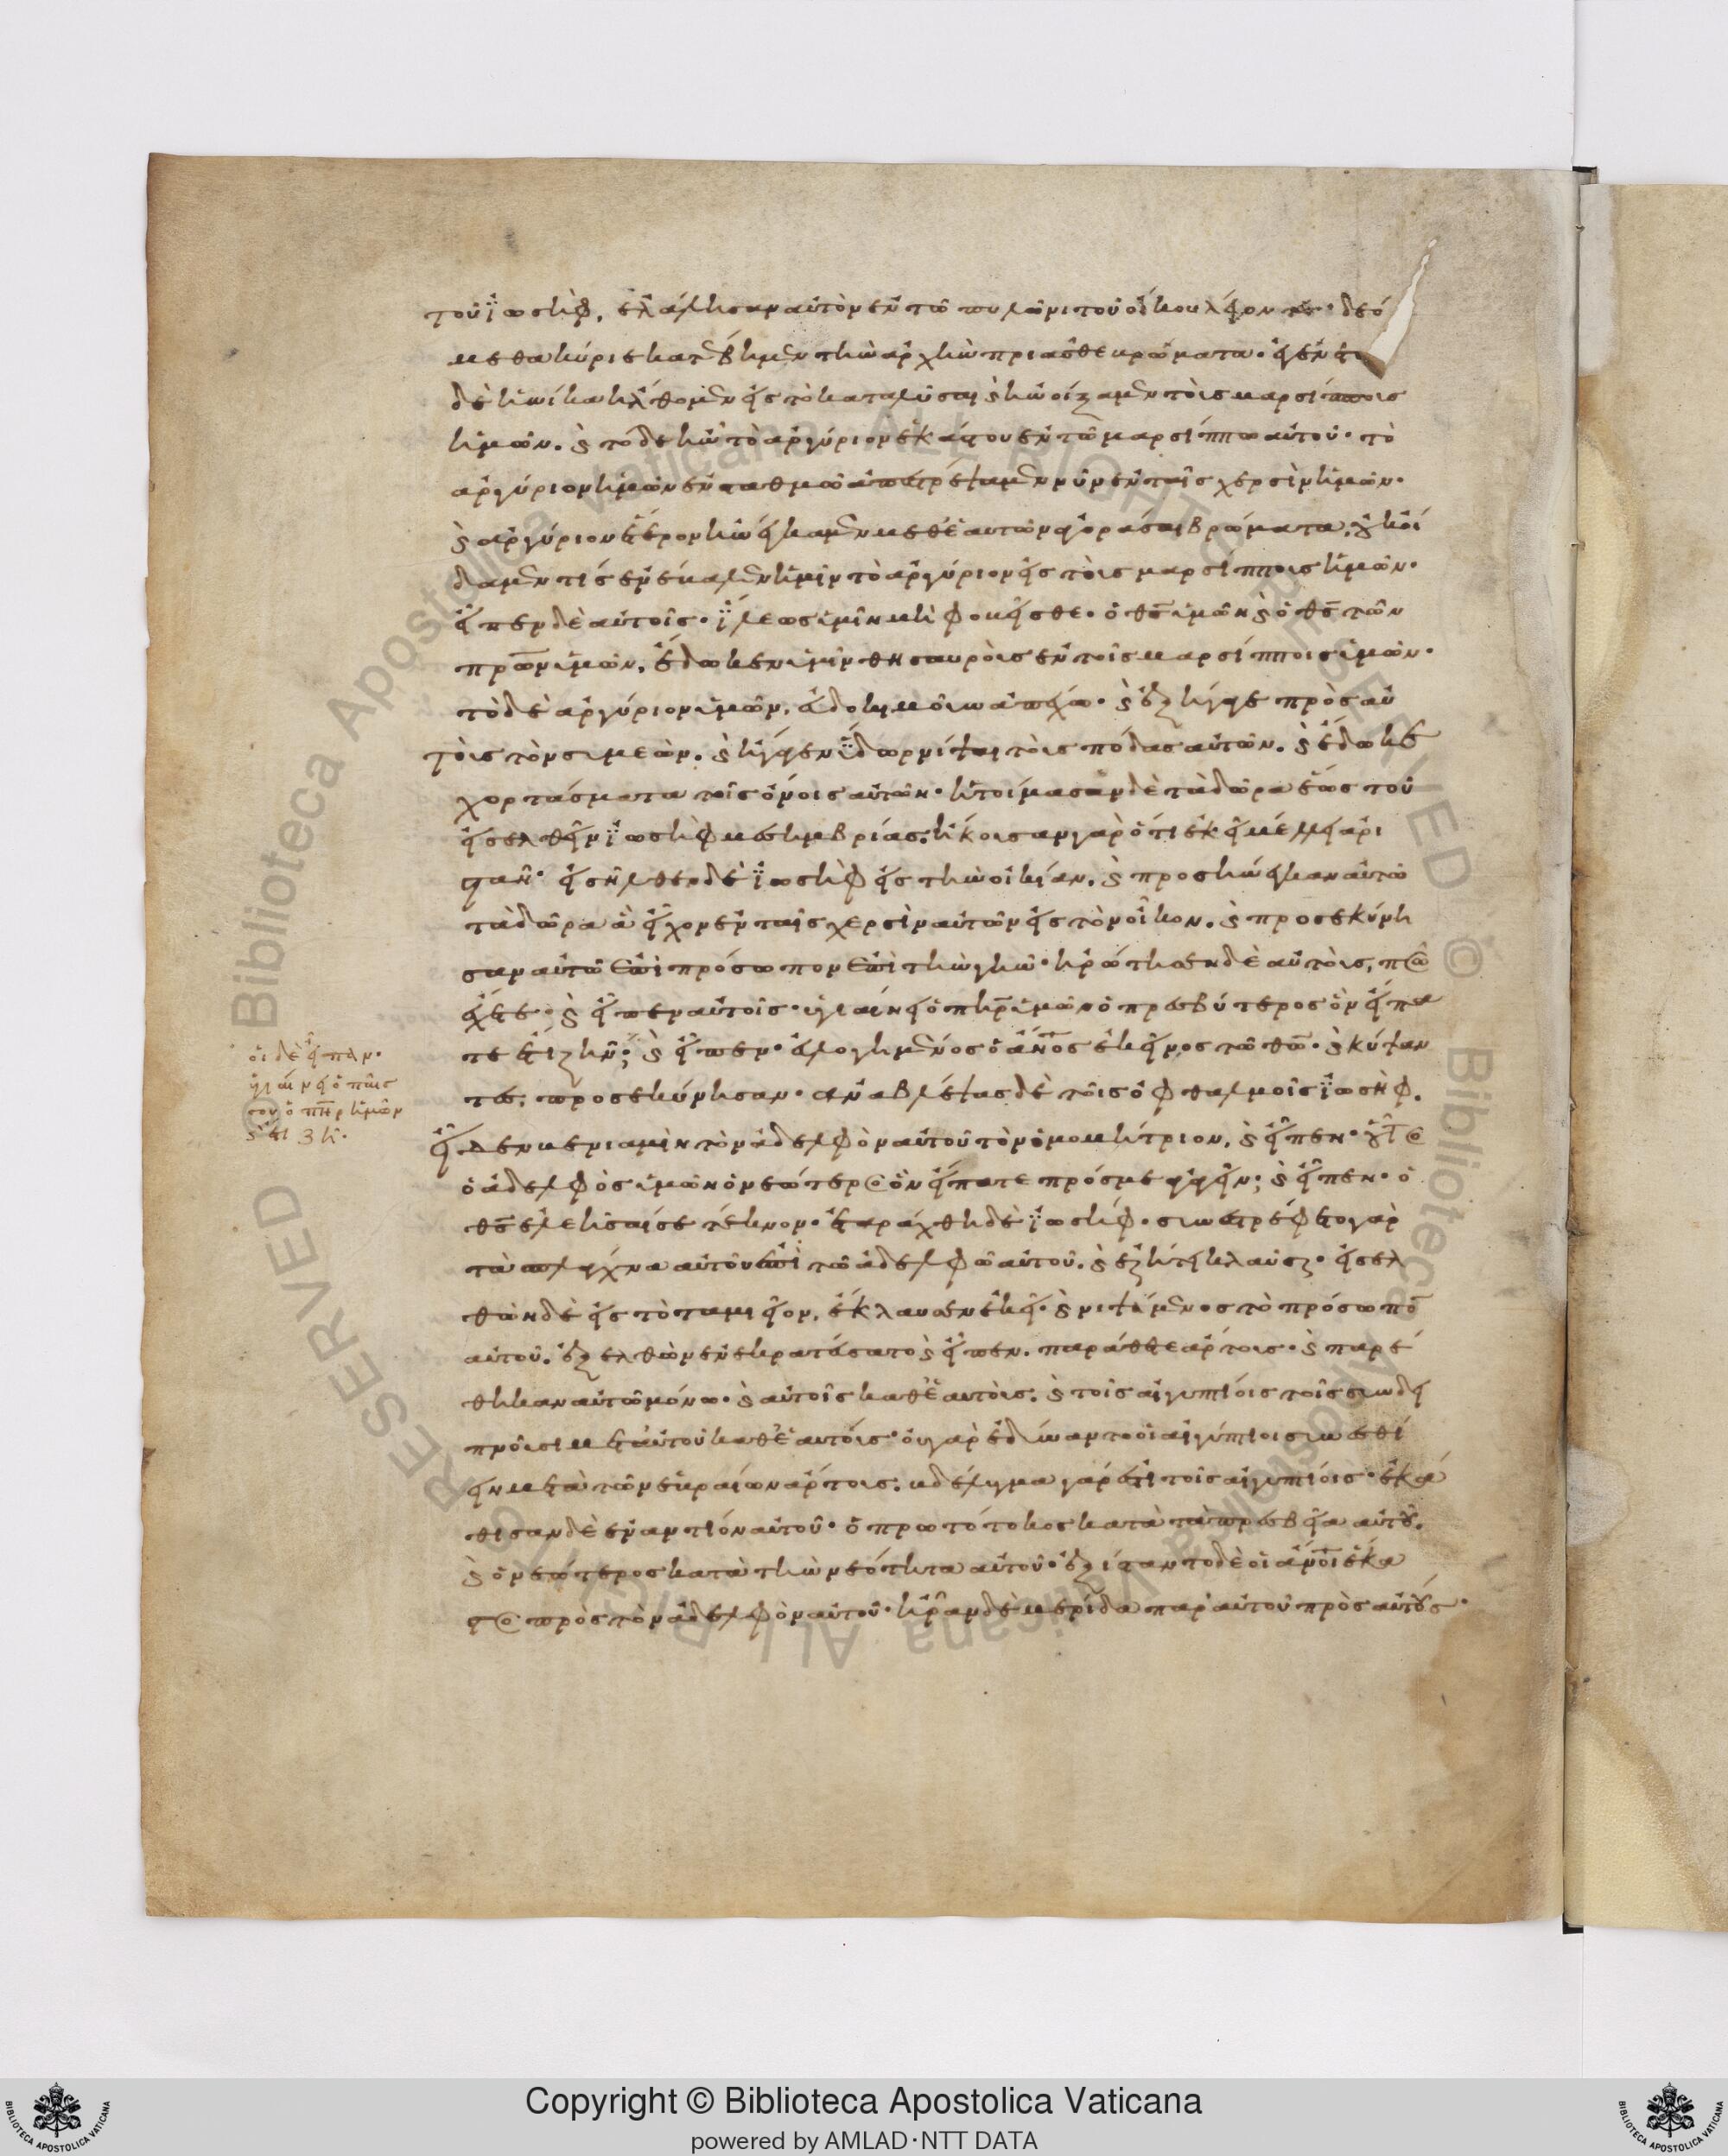 τοῦ ἰωσὴφ, ἐλάλησαν αὐτὸν ἐν τῶ πυλῶνι τοῦ οἴκου λέγοντες· δεό
μεθα κύριε κατέβημεν τὴν ἀρχὴν πριᾶσθε βρώματα· ἐγένετο
δὲ ἡνίκα ἤλθομεν εἰς τὸ καταλῦσαι καὶ ἠνοίξαμεν τοὺς μαρσίππους
ἡμῶν. καὶ τόδε ἦν τὸ ἀργύριον ἑκάστου ἐν τῶ μαρσίππω αὐτοῦ· τὸ
ἀργύριον ἡμῶν ἐν σταθμῶ ἀπεστρέψαμεν νῦν ἐν ταῖς χερσὶν ἡμῶν·
καὶ ἀργύριον ἕτερον ἠνέγκαμεν μεθ' ἑαυτῶν ἀγοράσαι βρώματα. οὐκ οἴ
δαμεν τίς ἐνέβαλεν ἡμῖν τὸ ἀργύριον εἰς τοὺς μαρσίππους ἡμῶν·
εἶπεν δὲ αὐτοῖς· ἵλεως ὑμῖν μὴ φοβεῖσθε· ὁ θς ὑμῶν καὶ ὁ θς τῶν
πρων ὑμῶν, ἔδωκεν ὑμῖν θησαυροὺς ἐν τοῖς μαρσίπποις ὑμῶν·
τὸ δὲ ἀργύριον ὑμῶν, ἀπέχω· καὶ ἐξήγαγε πρὸς αὐ
τοὺς τὸν συμεών. καὶ ἤγαγεν ὕδωρ νίψαι τοὺς πόδας αὐτῶν. καὶ ἔδωκε
χορτάσματα τοῖς ὄνοις αὐτῶν· ἡτοίμασαν δὲ τὰ δῶρα ἕως τοῦ
εἰσελθεῖν ἰωσὴφ μεσημβρίας. ἤκουσαν γὰρ ὅτι ἐκεῖ μέλλει ἀρι
σταν· εἰσῆλθεν δὲ ἰωσὴφ εἰς τὴν οἰκίαν. καὶ προσήνεγκαν αὐτῶ
τὰ δῶρα ἃ εἶχον ἐν ταῖς χερσὶν αὐτῶν εἰς τὸν οἶκον. καὶ προσεκύνη
σαν αὐτῶ ἐπὶ πρόσωπον ἐπὶ τὴν γῆν· ἠρώτησεν δὲ αὐτοὺς, πῶς
ἔχετε; καὶ εἶπεν αὐτοῖς· ὑγιαίνει ὁ πηρ ὑμῶν ὁ πρεσβύτερος ὃν εἴπα
τε ἔτι ζῆν; καὶ εἶπεν· εὐλογημένος ὁ ανος ἐκεῖνος τῶ θω· καὶ κύψαν
τες, προσεκύνησαν· ἀναβλέψας δὲ τοῖς ὀφθαλμοῖς ἰωσὴφ.
εἶδεν βενιαμὶν τὸν ἀδελφὸν αὐτοῦ τὸν ὁμομήτριον, καὶ εἶπεν· οὗτος
ὁ ἀδελφὸς ὑμῶν ὁ νεώτερος ὃν εἴπατε πρός με ἀγαγεῖν; καὶ εἶπεν· ὁ
θς ἐλεήσαι σε τέκνον· ἐταράχθη δὲ ἰωσήφ· συνεστρέφετο γὰρ
τὰ σπλάγχνα αὐτοῦ ἐπὶ τῶ ἀδελφῶ αὐτοῦ. καὶ ἐζήτει κλαῦσαι· εἰσελ
θὼν δὲ εἰς τὸ ταμιεῖον, ἔκλαυσεν ἐκεῖ· καὶ νιψάμενος τὸ πρόσωπον
αὐτοῦ. ἐξελθὼν ἐνεκρατεύσατο καὶ εἶπεν. παράθετε ἄρτους· καὶ παρέ
θηκαν αὐτῶ μόνω· καὶ αὐτοῖς καθ' ἑαυτοὺς. καὶ τοῖς αἰγυπτίοις τοῖς συνδει
πνοῦσι μετ' αὐτοῦ καθ' ἑαυτούς· οὐ γὰρ ἐδύναντο οἱ αἰγύπτιοι συνεσθί
ειν μετὰ τῶν ἑβραίων ἄρτους. βδέλυγμα γάρ ἐστι τοῖς αἰγυπτίοις· ἐκά
θισαν δὲ ἐναντίον αὐτοῦ· ὁ πρωτότοκος κατὰ τὰ πρεσβεῖα αὐτοῦ.
καὶ ὁ νεώτερος κατὰ τὴν νεότητα αὐτοῦ· ἐξίσταντο δὲ οἱ ανοι ἕκα
στος πρὸς τὸν ἀδελφὸν αὐτοῦ· ἦραν δὲ μερίδα παρ' αὐτοῦ πρὸς αὐτούς·
οἱ δὲ εἶπαν·
ὑγιαίνει ὁ παῖς
σου ὁ πηρ ἡμῶν
καὶ ἔτι ζῆ·
Copyright © Biblioteca Apostolica Vaticana
powered by AMLAD·NTT DATA